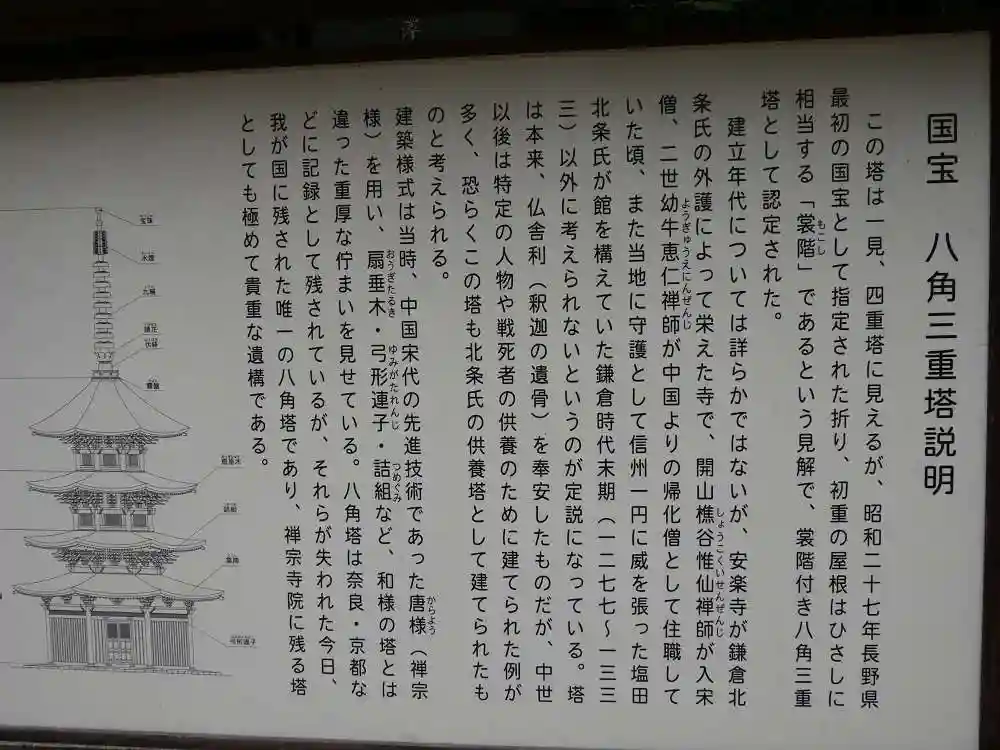 国宝 八角三重塔説明
この塔は一見、四重塔に見えるが、昭和二十七年長野県
最初の国宝として指定された折り、初重の屋根はひさしに
相当する「裳階」であるという見解で、裳階付き八角三重
もこし
塔として認定された。
建立年代については詳らかではないが、安楽寺が鎌倉北
条氏の外護によって栄えた寺で、開山樵谷惟仙禅師が入宋
しょうこくいせんぜんじ
僧、二世幼牛恵仁禅師が中国よりの帰化僧として住職して
ようぎゅうえにんぜんじ
いた頃、また当地に守護として信州一円に威を張った塩田
北条氏が館を構えていた鎌倉時代末期(一二七七〜一三三
三)以外に考えられないというのが定説になっている。塔
は本来、仏舎利(釈迦の遺骨)を奉安したものだが、中世
以後は特定の人物や戦死者の供養のために建てられた例が
多く、恐らくこの塔も北条氏の供養塔として建てられたも
のと考えられる。
建築様式は当時、中国宋代の先進技術であった唐様(禅宗
からよう
様)を用い、扇垂木・弓形連子・詰組など、和様の塔とは
おうぎたるき
ゆみがたれんじ
つめぐみ
違った重厚な佇まいを見せている。八角塔は奈良・京都な
どに記録として残されているが、それらが失われた今日、
我が国に残された唯一の八角塔であり、禅宗寺院に残る塔
としても極めて貴重な遺構である。